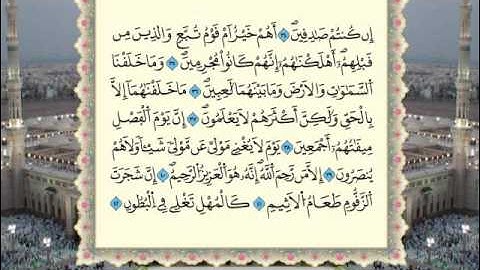 إِن كُنتُمْ صَٰدِقِينَۖ ٣٤ أَهُمْ خَيْرٌ أَمْ قَوْمُ تُبَّعٖ وَالذِينَ مِن
قَبْلِهِمُۥٓ أَهْلَكْنَٰهُمُۥٓ إِنَّهُمْ كَانُواْ مُجْرِمِينَۖ ٣٥ وَمَا خَلَقْنَا
اَ۬لسَّمَٰوَٰتِ وَالَارْضَ وَمَا بَيْنَهُمَا لَٰعِبِينَۖ ٣٦ مَا خَلَقْنَٰهُمَا إِلَّا
بِالْحَقِّ وَلَٰكِنَّ أَكْثَرَهُمْ لَا يَعْلَمُونَۖ ٣٧ إِنَّ يَوْمَ اَ۬لْفَصْلِ
مِيقَٰتُهُمُۥٓ أَجْمَعِينَ ٣٨ يَوْمَ لَا يُغْنِے مَوْليً عَن مَّوْليٗ شَيْـٔاٗ وَلَا هُمْ
يُنصَرُونَ ٣٩ إِلَّا مَن رَّحِمَ اَ۬للَّهُۖ إِنَّهُۥ هُوَ اَ۬لْعَزِيزُ اُ۬لرَّحِيمُۖ ٤٠ إِنَّ شَجَرَتَ
اَ۬لزَّقُّومِ طَعَامُ اُ۬لَاثِيمِ ٤١ كَالْمُهْلِ تَغْلِے فِے اِ۬لْبُطُونِ ٤٢